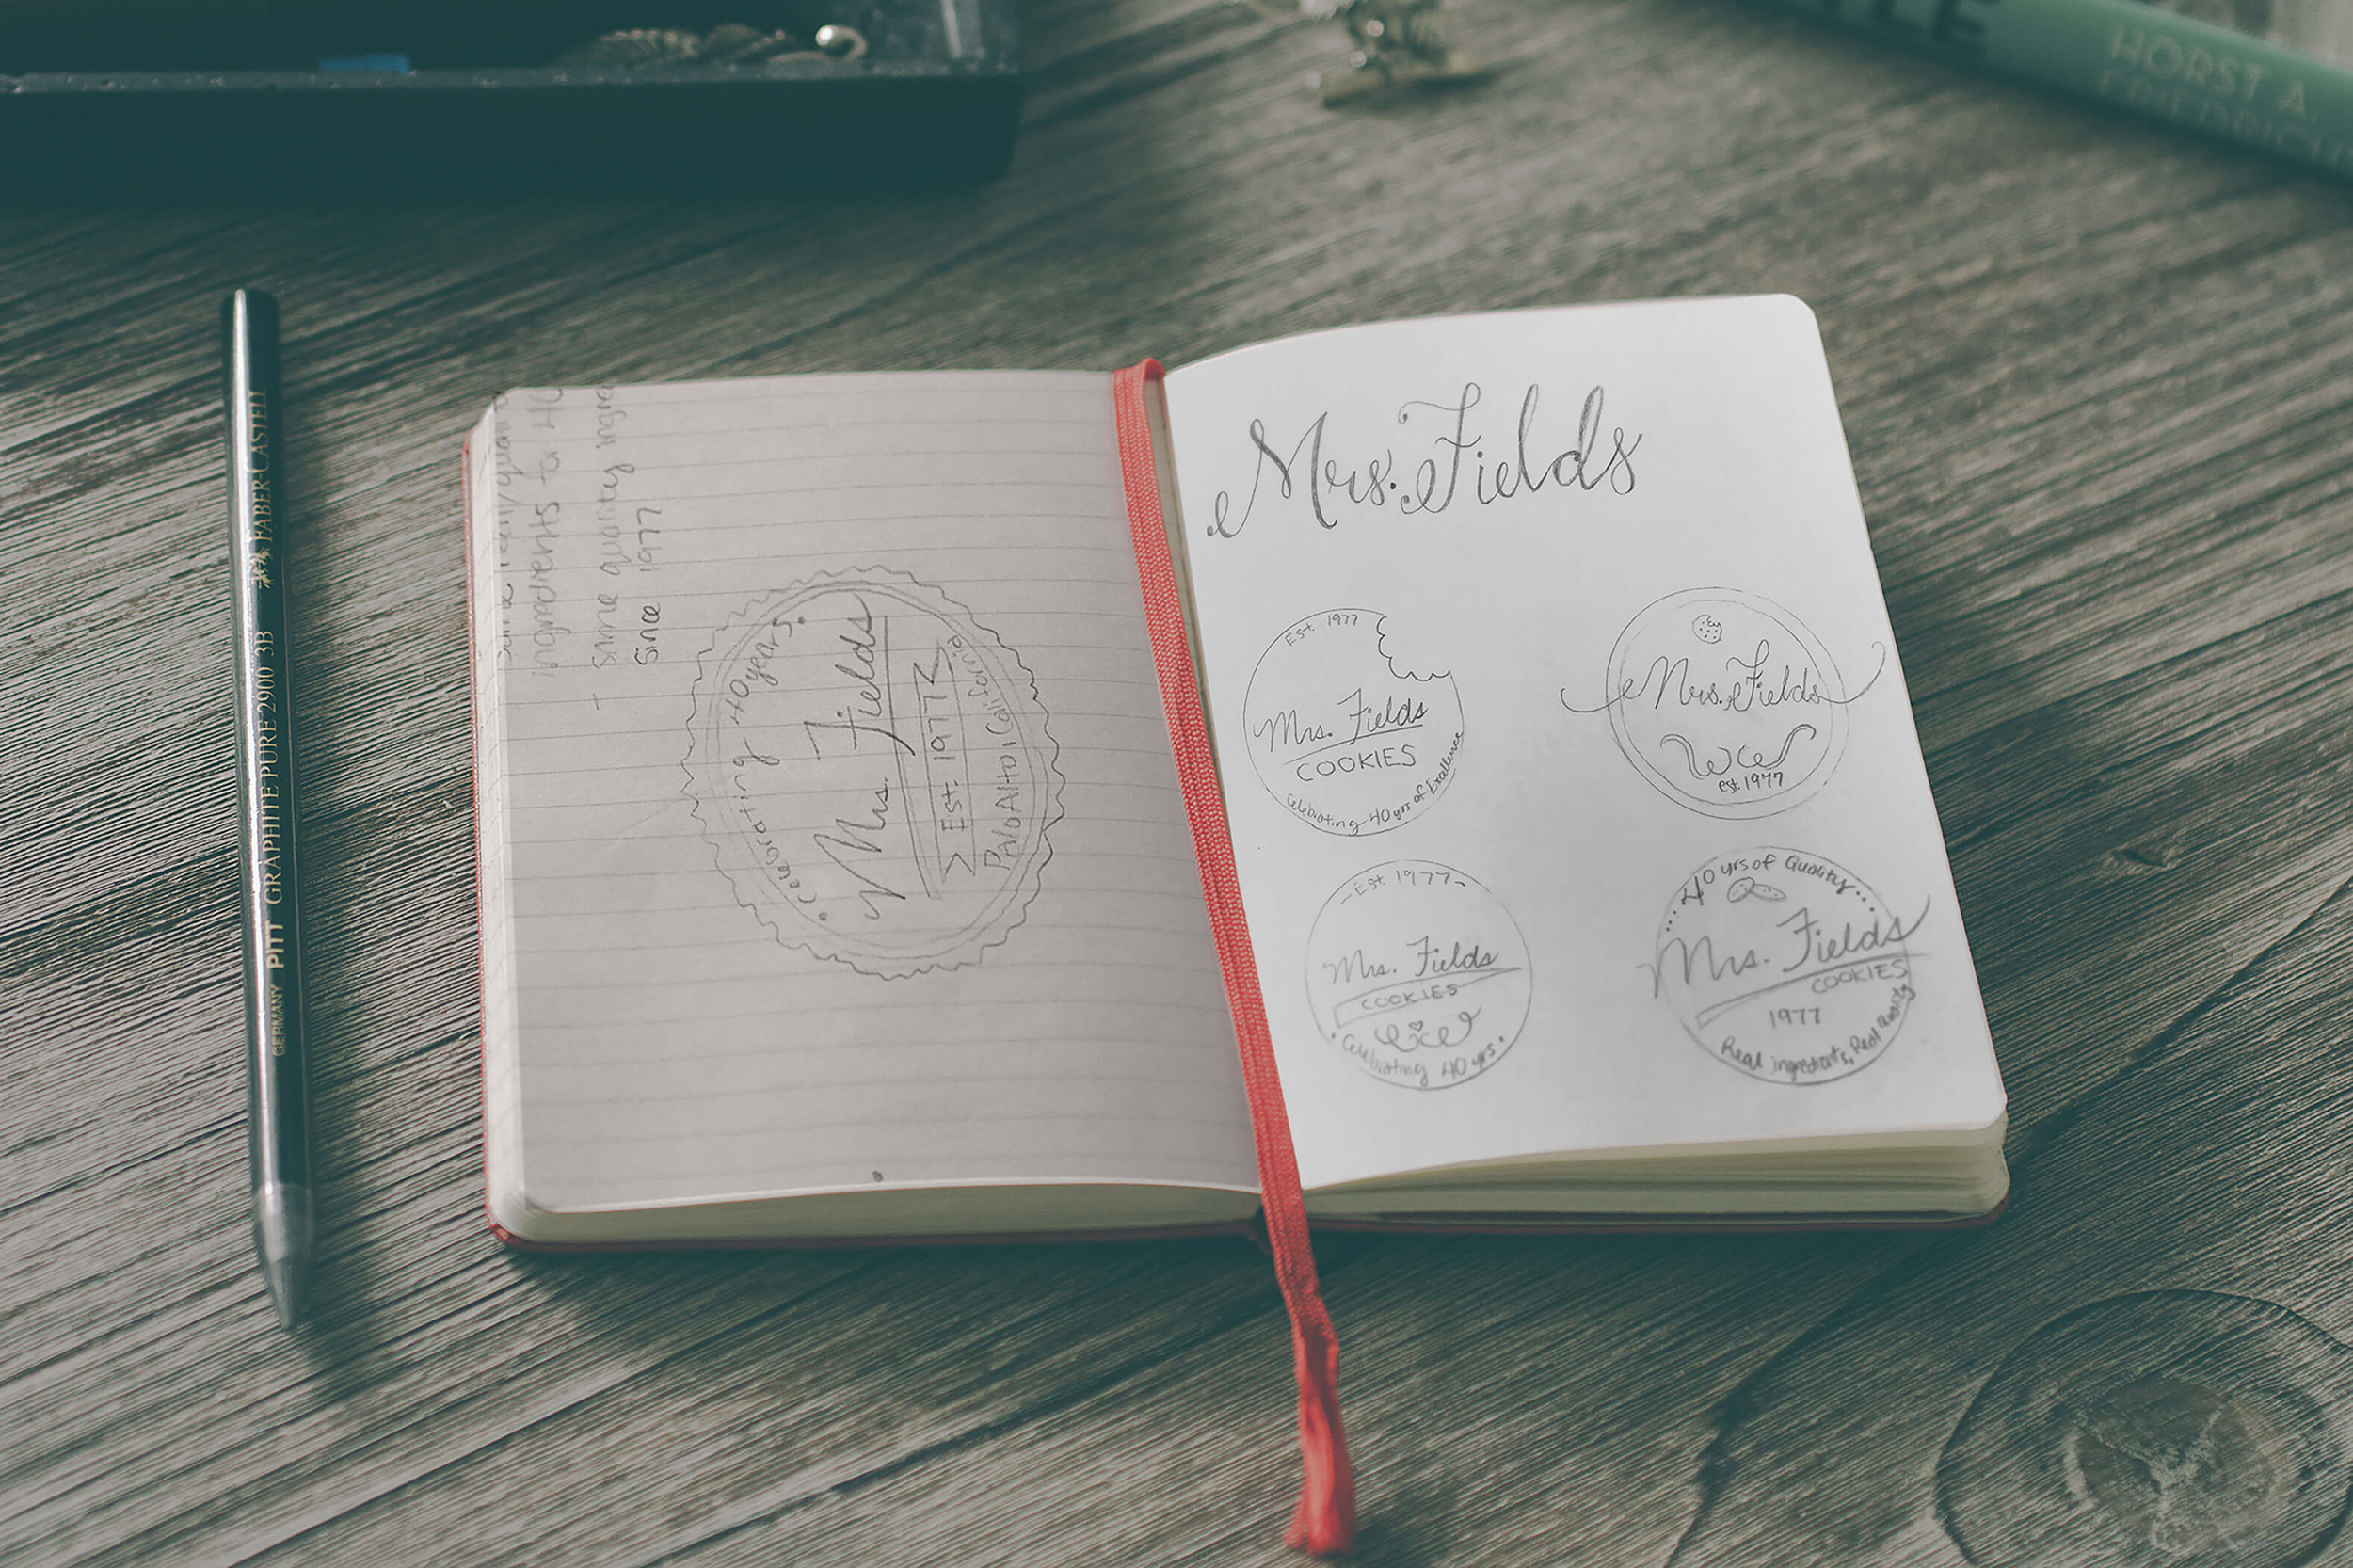 HORST A.
FABER-CASTELL
GERMANY PITT GRAPHITE PURE 2900 3B
ingredients to
- Same quality
Since 1977
Celebrating 40 years
Mrs. Fields
Est. 1977
Palo Alto | California
Mrs. Fields
Est. 1977
Mrs. Fields
COOKIES
Celebrating 40 yrs of Excellence
Mrs. Fields
est. 1977
-Est. 1977-
Mrs. Fields
COOKIES
Celebrating 40 yrs.
40 yrs of Quality
Mrs. Fields
COOKIES
1977
Real ingredients, Real Quality